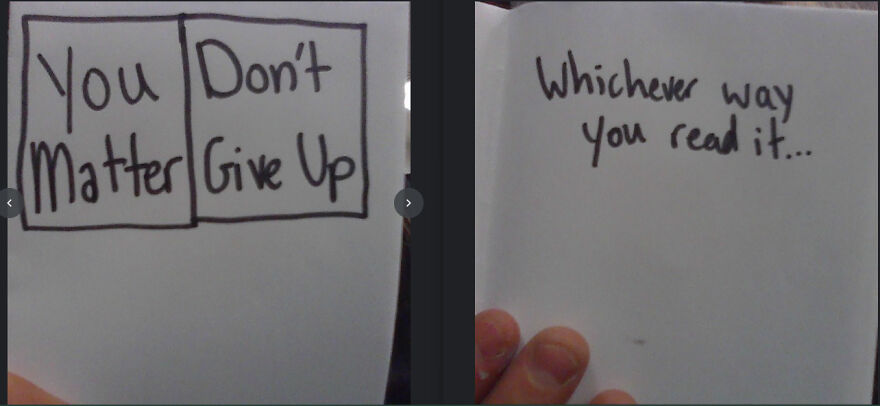 You
Matter
Don't
Give Up
Whichever way
you read it...